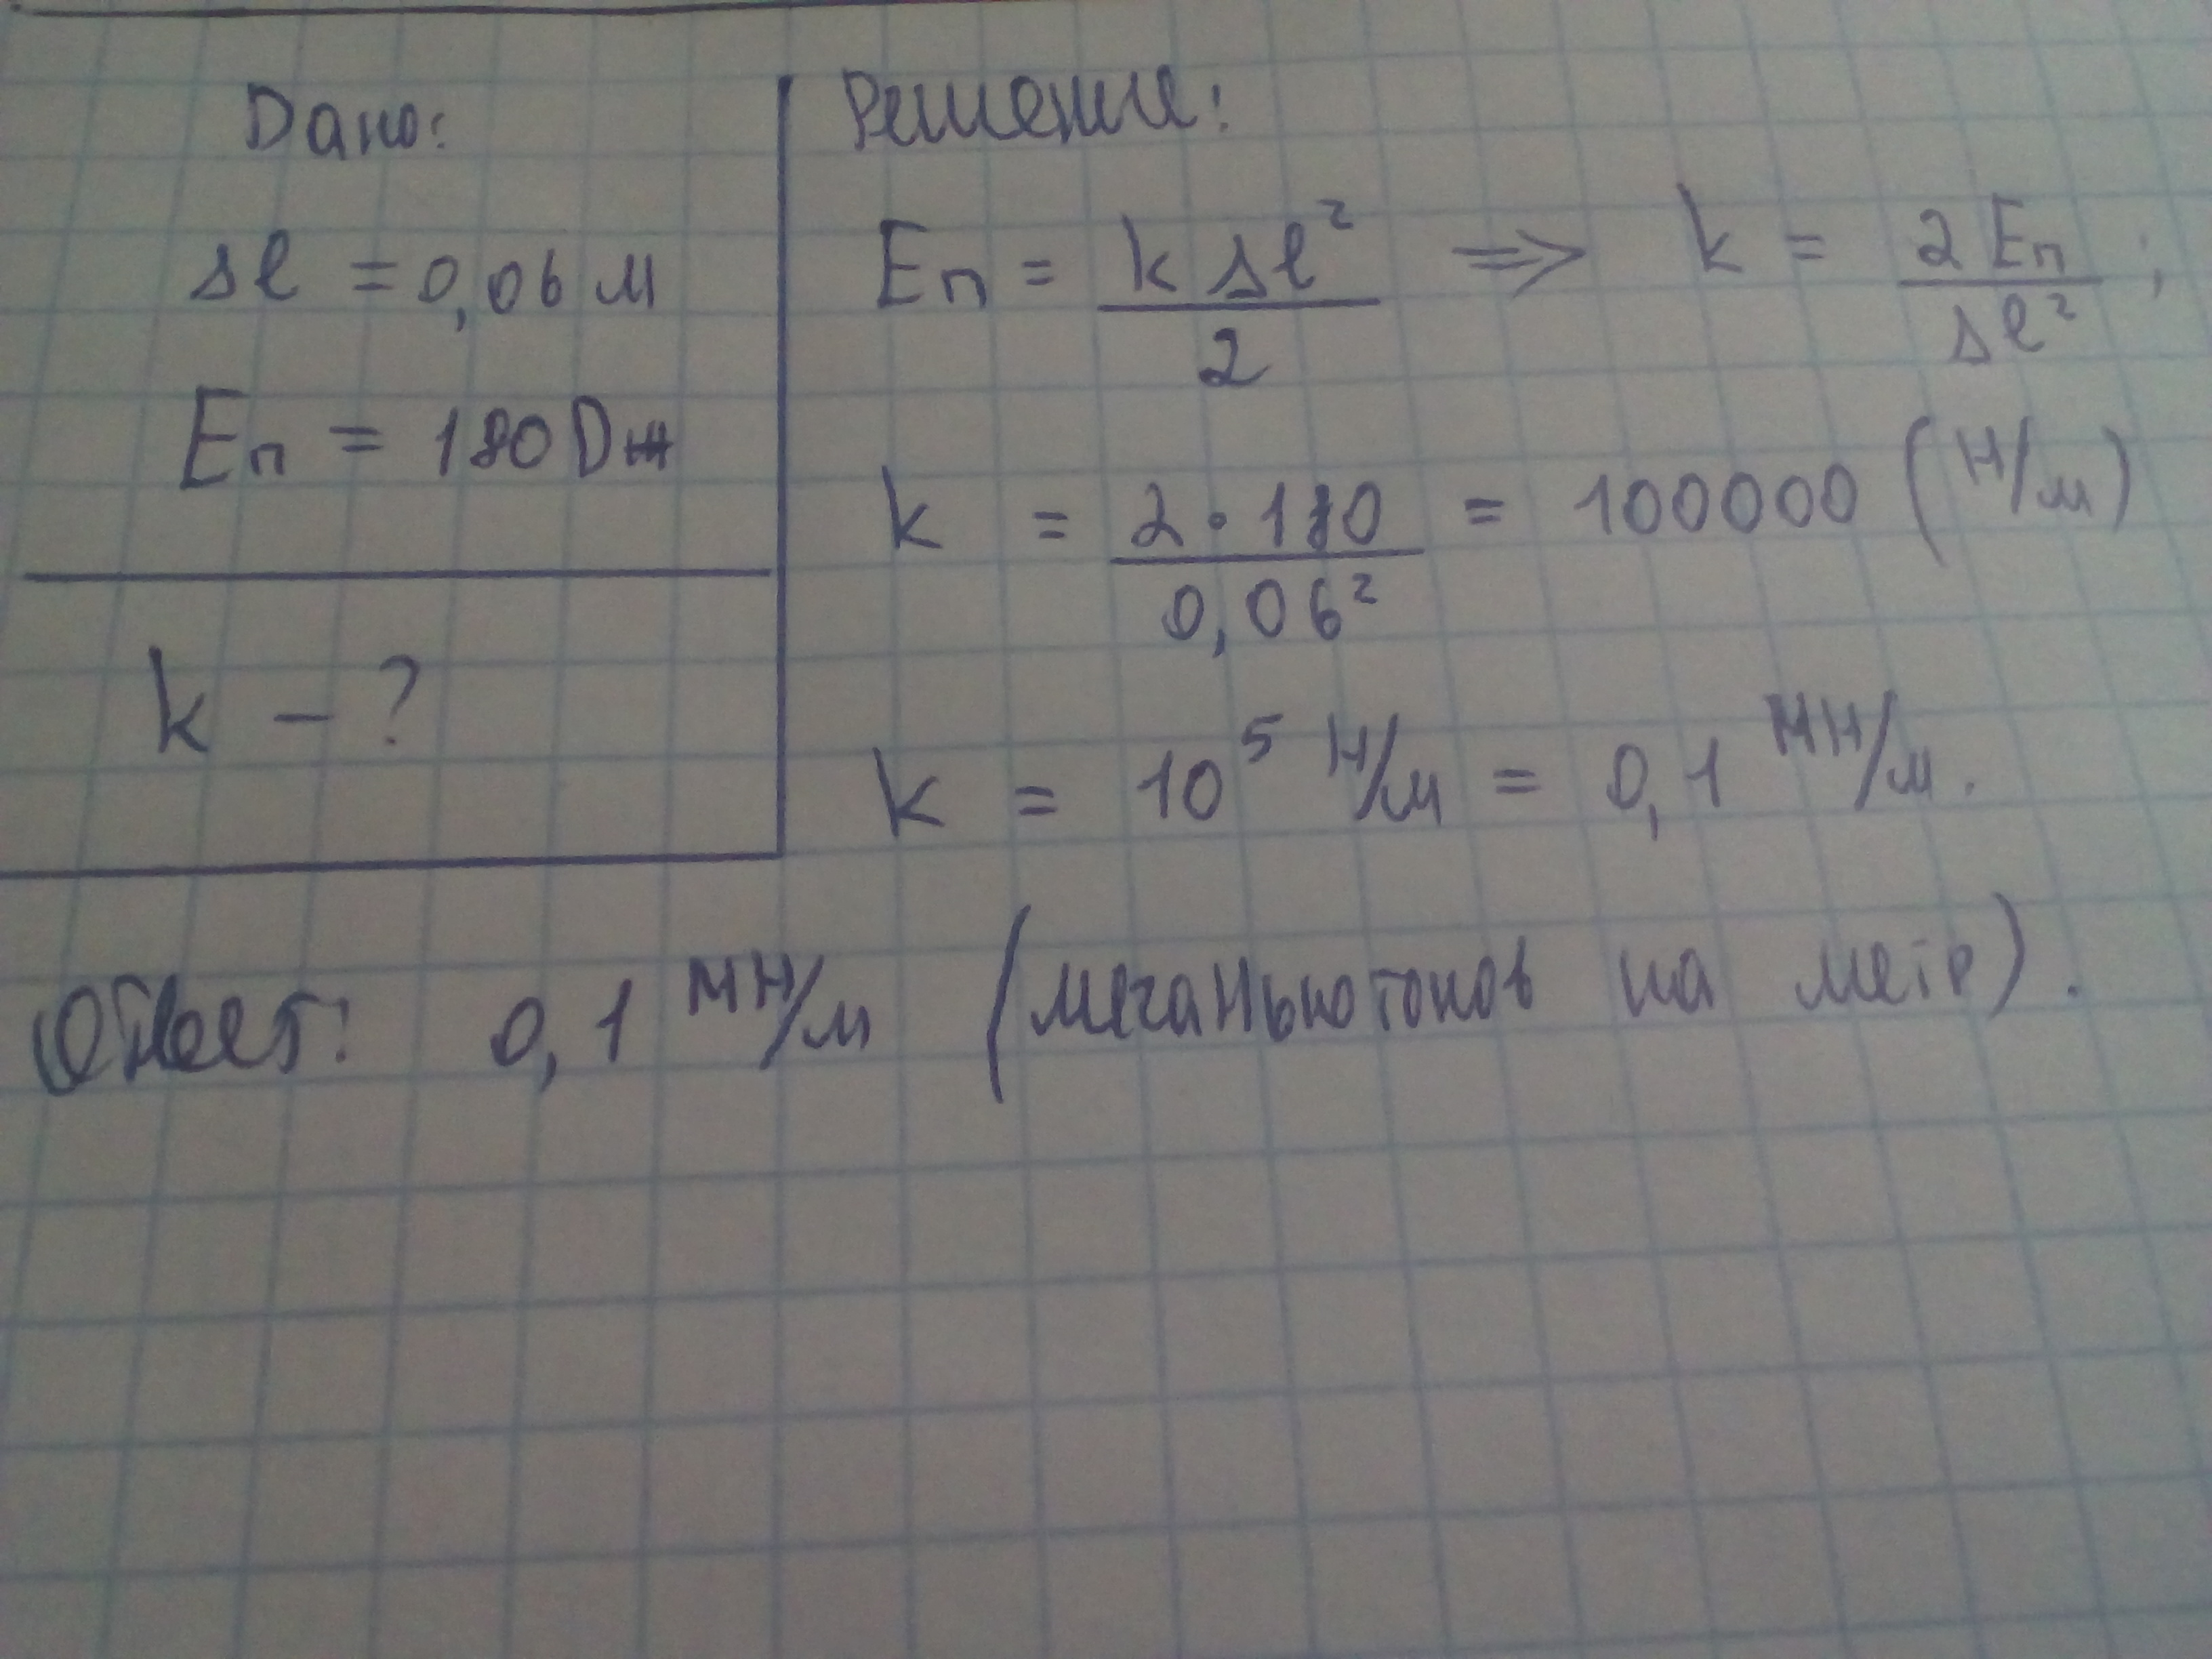 Дано:
Δl = 0,06 м
Eп = 180 Дж
k - ?
Решение:
Eп = k Δl² / 2 => k = 2 Eп / Δl² ;
k = 2 • 180 / 0,06² = 100000 (Н/м)
k = 10⁵ Н/м = 0,1 МН/м.
Ответ: 0,1 МН/м (меганьютонов на метр).